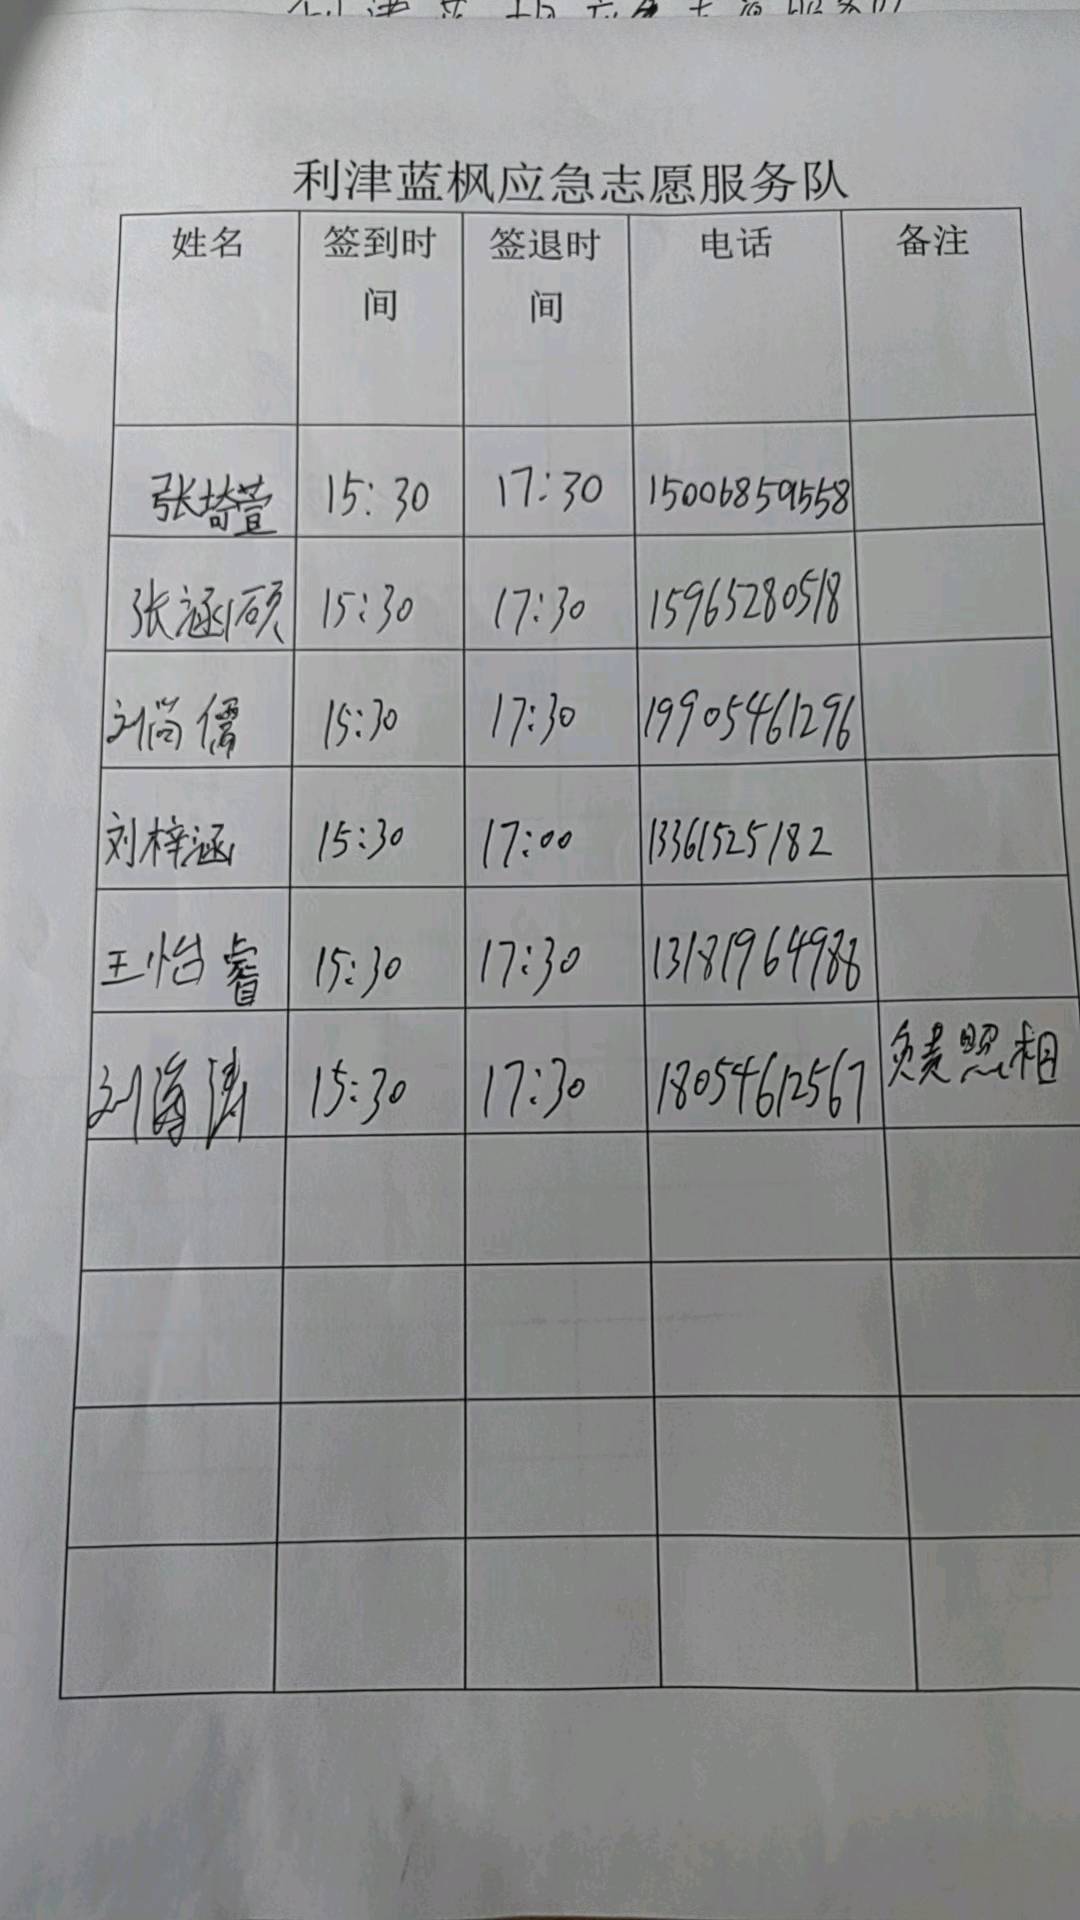 利津蓝枫应急志愿服务队
姓名 签到时间 签退时间 电话 备注
张埼萱 15:30 17:30 15006859558
张涵硕 15:30 17:30 15965280518
刘尚儒 15:30 17:30 19905461296
刘梓涵 15:30 17:00 13361525182
王怡睿 15:30 17:30 13181964988
刘海涛 15:30 17:30 18054612567 负责照相